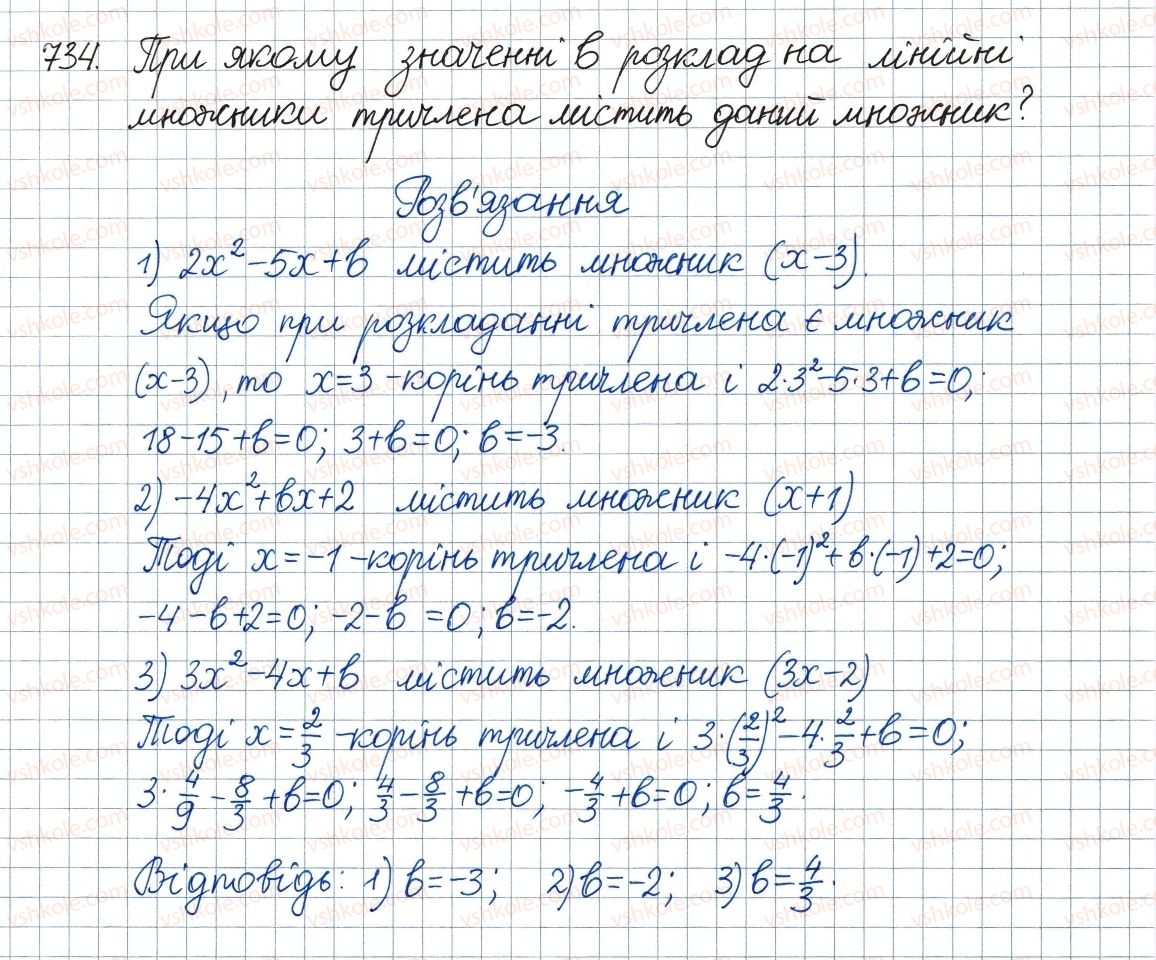 734. При якому значенні b розклад на лінійні
множники тричлена містить даний множник?
Розв'язання
1) 2x² - 5x + b містить множник (x - 3).
Якщо при розкладанні тричлена є множник
(x - 3), то x = 3 - корінь тричлена і 2·3² - 5·3 + b = 0;
18 - 15 + b = 0; 3 + b = 0; b = -3.
2) -4x² + bx + 2 містить множник (x + 1)
Тоді x = -1 - корінь тричлена і -4·(-1)² + b·(-1) + 2 = 0;
-4 - b + 2 = 0; -2 - b = 0; b = -2.
3) 3x² - 4x + b містить множник (3x - 2)
Тоді x = 2/3 - корінь тричлена і 3·(2/3)² - 4·2/3 + b = 0;
3·4/9 - 8/3 + b = 0; 4/3 - 8/3 + b = 0; -4/3 + b = 0; b = 4/3.
Відповідь: 1) b = -3; 2) b = -2; 3) b = 4/3.
vshkole.com